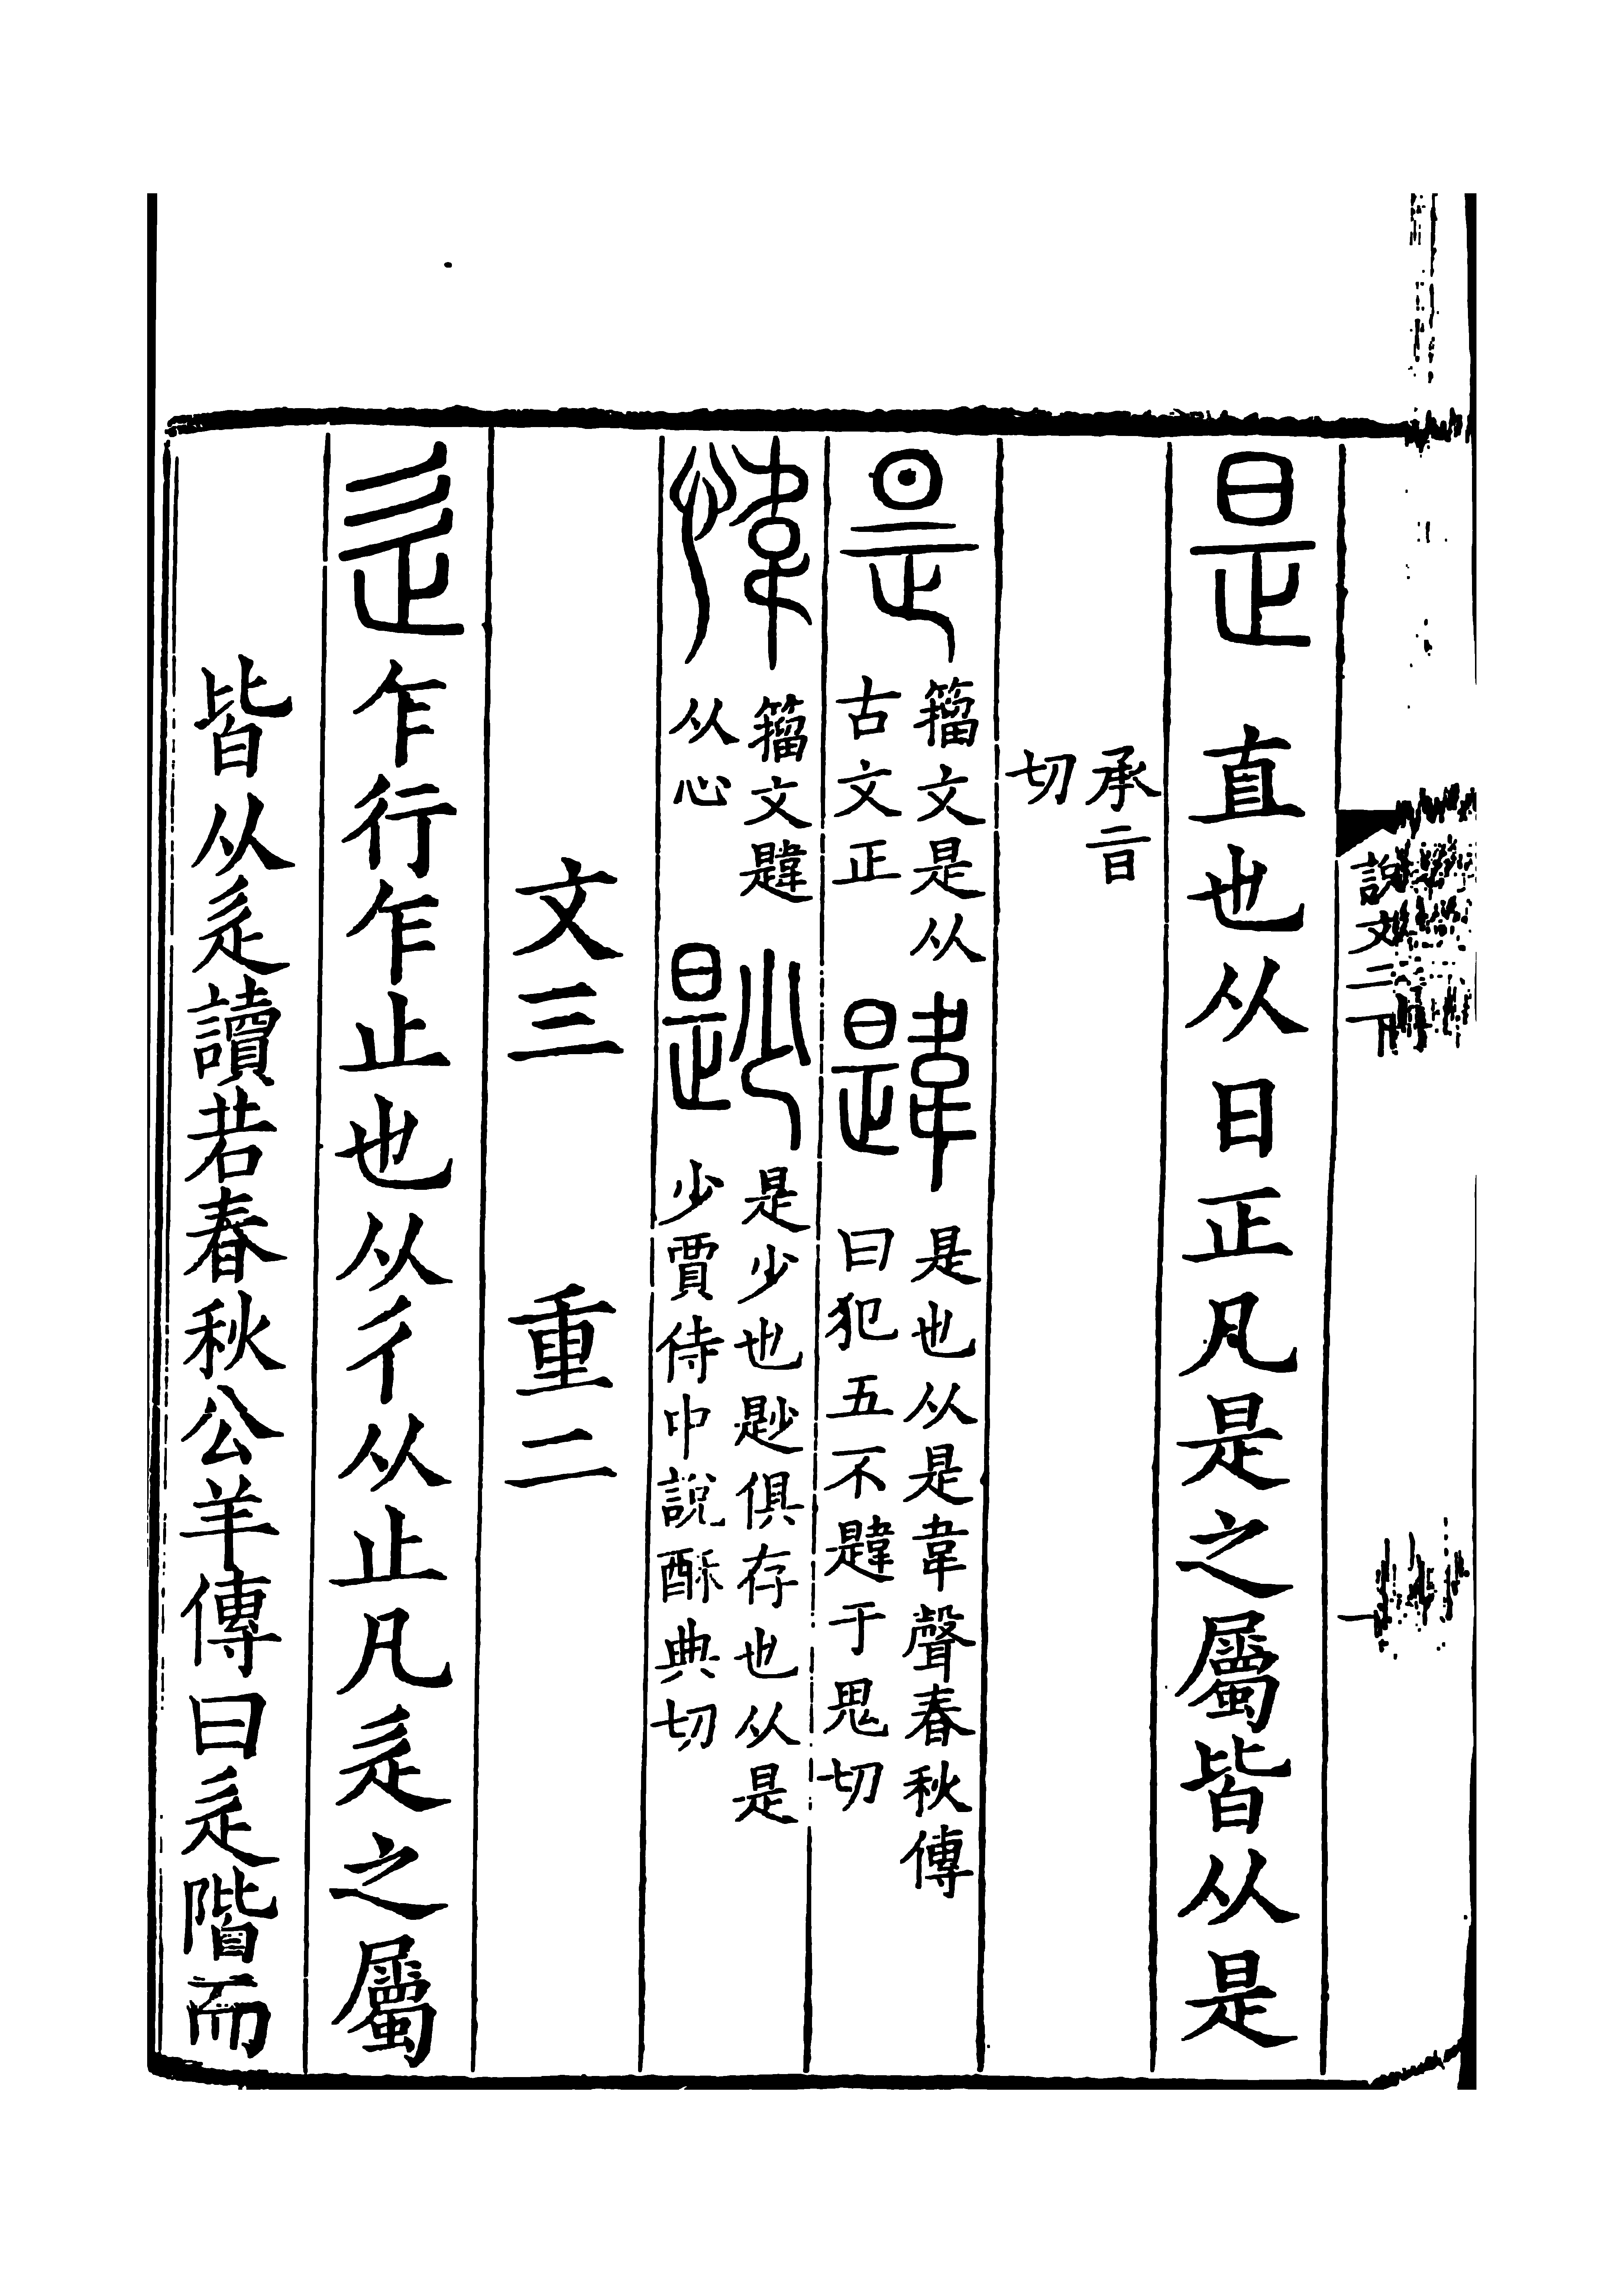 說文二下
一
是 直也从日正凡是之屬皆从是
承旨
切
昰 籒文是从
古文正
韙 是也从是韋聲春秋傳
曰犯五不韙于鬼切
愇 籒文韙
从心
尟 是少也尟俱存也从是
少賈侍中說酥典切
文三 重二
辵 乍行乍止也从彳从止凡辵之屬
皆从辵讀若春秋公羊傳曰辵階而